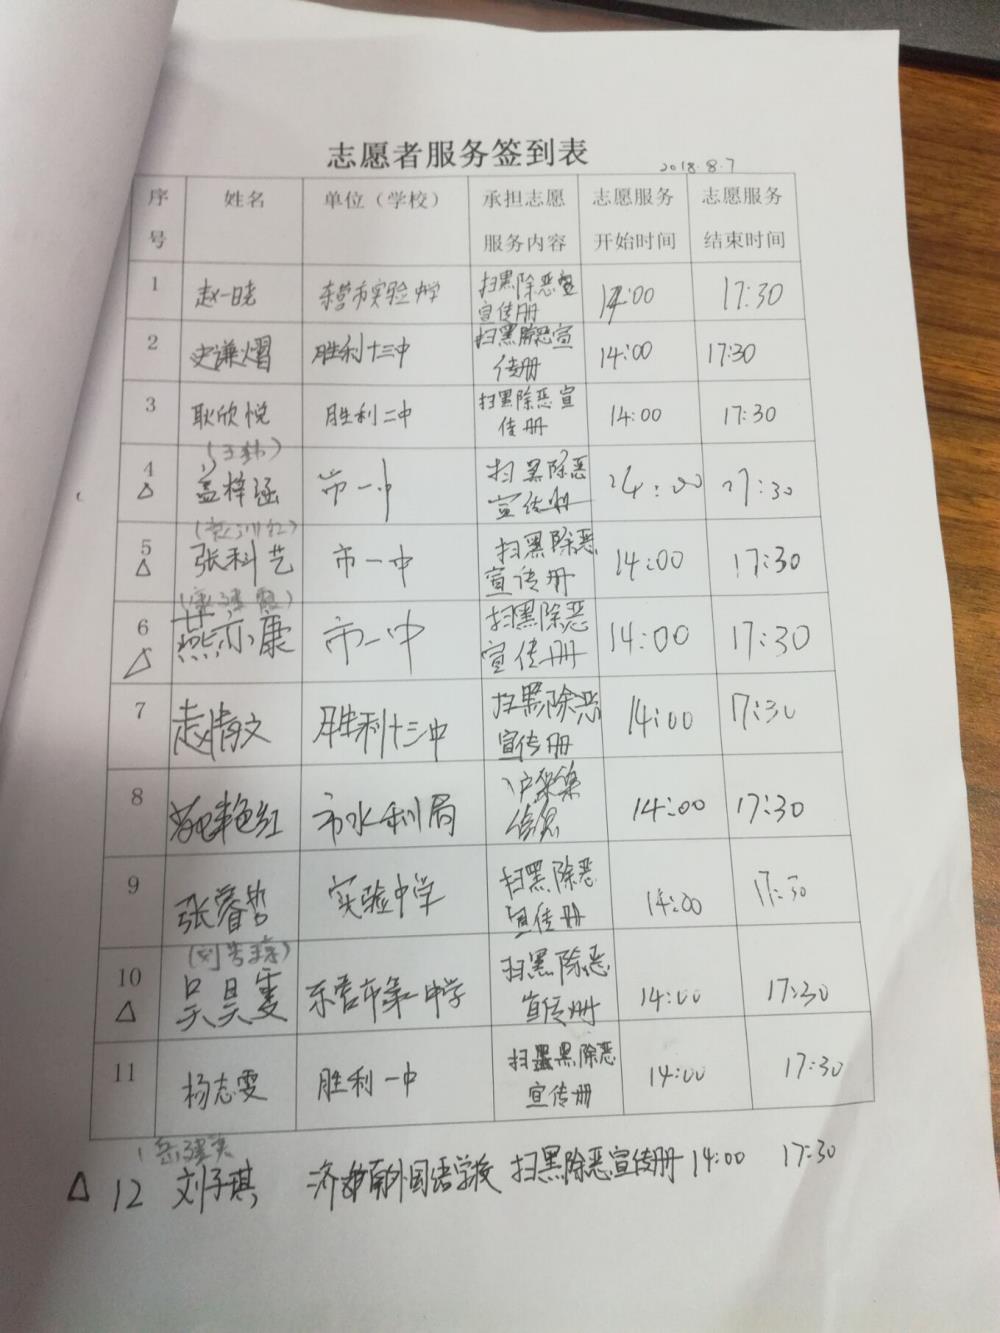 志愿者服务签到表
2018.8.7
序号 姓名 单位（学校） 承担志愿服务内容 志愿服务开始时间 志愿服务结束时间
1 赵一晓 东营市实验中学 扫黑除恶宣宣传册 14:00 17:30
2 史谦熠 胜利十三中 扫黑除恶宣传册 14:00 17:30
3 耿欣悦 胜利二中 扫黑除恶宣传册 14:00 17:30
4 △ 孟梓涵 市一中 扫黑除恶宣传册 14:00 17:30
5 △ 张科艺 市一中 扫黑除恶宣传册 14:00 17:30
6 △ 燕亦康 市一中 扫黑除恶宣传册 14:00 17:30
7 赵倩文 胜利十三中 扫黑除恶宣传册 14:00 17:30
8 艳红 市水利局 入户采集信息 14:00 17:30
9 张睿哲 实验中学 扫黑除恶宣传册 14:00 17:30
10 △ 吴昊雯 东营市第一中学 扫黑除恶宣传册 14:00 17:30
11 杨志雯 胜利一中 扫黑除恶宣传册 14:00 17:30
△ 12 刘子琪 济南外国语学校 扫黑除恶宣传册 14:00 17:30